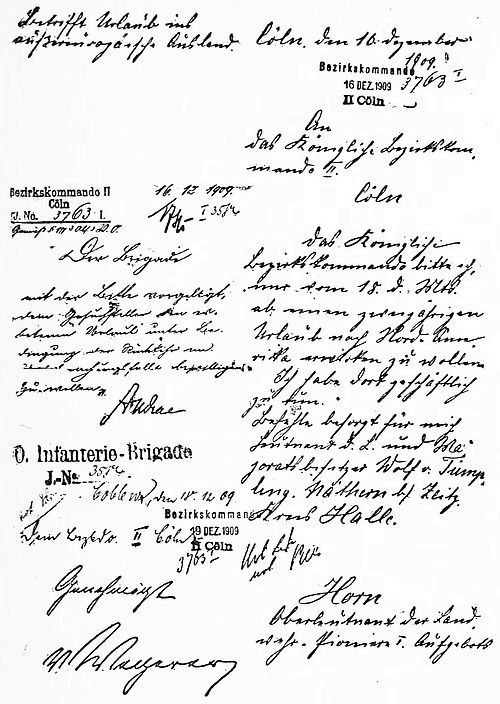 Betrifft Urlaub ins
außereuropäische Ausland.
Cöln, den 16. Dezember
1909.
Bezirkskommando
16 DEZ. 1909 3763 I
II Cöln
An
das Königliche Bezirkskom,
mando II.
Cöln
Das Königliche
Bezirkskommando bitte ich,
mir vom 18. d. Mts.
ab einen zweijährigen
Urlaub nach Nord-Ame,
rika erwirken zu wollen.
Ich habe dort geschäftlich
zu tun.
Befehle besorgt für mich
Leutnant d. L. und Ma,
joratsbesitzer Wolf v. Tümp,
ling. Näthern b/ Zeitz.
Kreis Halle.
Horn
Oberleutnant der Land,
wehr-Pioniere I. Aufgebots
Bezirkskommando II
Cöln
J. No. 3763 I.
16.12 1909.
I 3514
Der Brigade
mit der Bitte vorgelegt,
dem Gesuchsteller den er,
betenen Urlaub unter Be,
dingung der Rückkehr im
zu wollen.
Andrae
0. Infanterie-Brigade
J.-No 3514
Coblenz, den 18.12.09
Dem Bezkdo. II Cöln
Bezirkskommando
19 DEZ. 1909
II Cöln
3763 I
Genehmigt